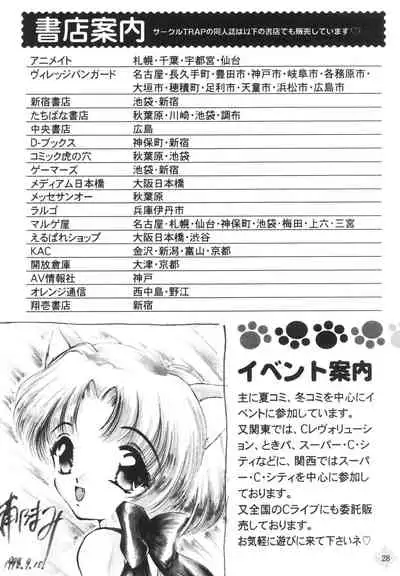 書店案内 サークルTRAPの同人誌は以下の書店でも販売しています♡
アニメイト 札幌・千葉・宇都宮・仙台
ヴィレッジバンガード 名古屋・長久手町・豊田市・神戸市・岐阜市・各務原市・
大垣市・穂積町・足利市・天童市・浜松市・広島市
新宿書店 池袋・新宿
たちばな書店 秋葉原・川崎・池袋・調布
中央書店 広島
D-ブックス 神保町・新宿
コミック虎の穴 秋葉原・池袋
ゲーマーズ 池袋・新宿
メディアム日本橋 大阪日本橋
メッセサンオー 秋葉原
ラルゴ 兵庫伊丹市
マルゲ屋 名古屋・札幌・仙台・神保町・池袋・梅田・上六・三宮
えるぱれショップ 大阪日本橋・渋谷
KAC 金沢・新潟・富山・京都
開放倉庫 大津・京都
AV情報社 神戸
オレンジ通信 西中島・野江
翔壱書店 新宿
イベント案内
主に夏コミ、冬コミを中心にイ
ベントに参加しています。
又関東では、Cレヴォリュー
ション、ときパ、スーパー・C・シ
ティなどに、関西ではスーパ
ー・C・シティを中心に参加し
ております。
又全国のCライブにも委託販
売しております。
お気軽に遊びに来て下さいネ♡
1998.9.10
28